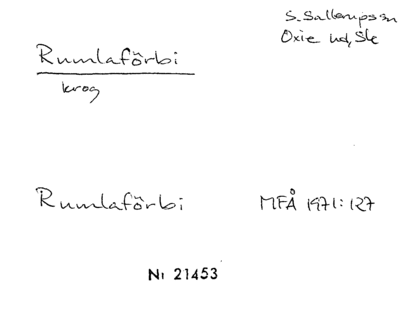 S. Sallerupssn
Oxie hd, Ske
Rumlaförbi
krog
Rumlaförbi MFÅ 1971:127
Nr 21453